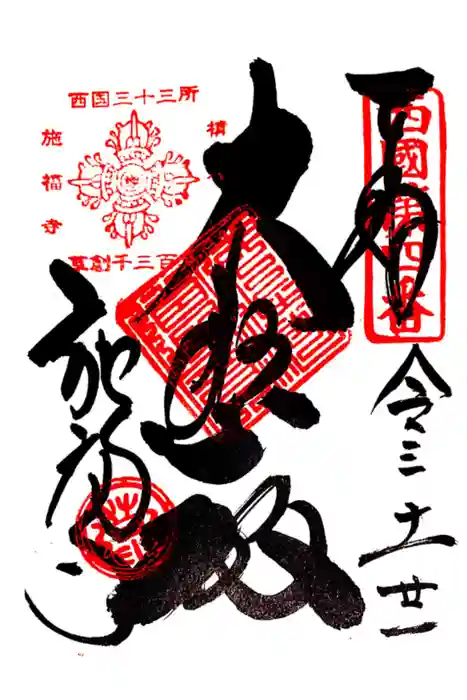 奉拝
西國第四番
令三
十一
廿一
大悲殿
西国三十三所
槙
施福寺
草創千三百
施福寺